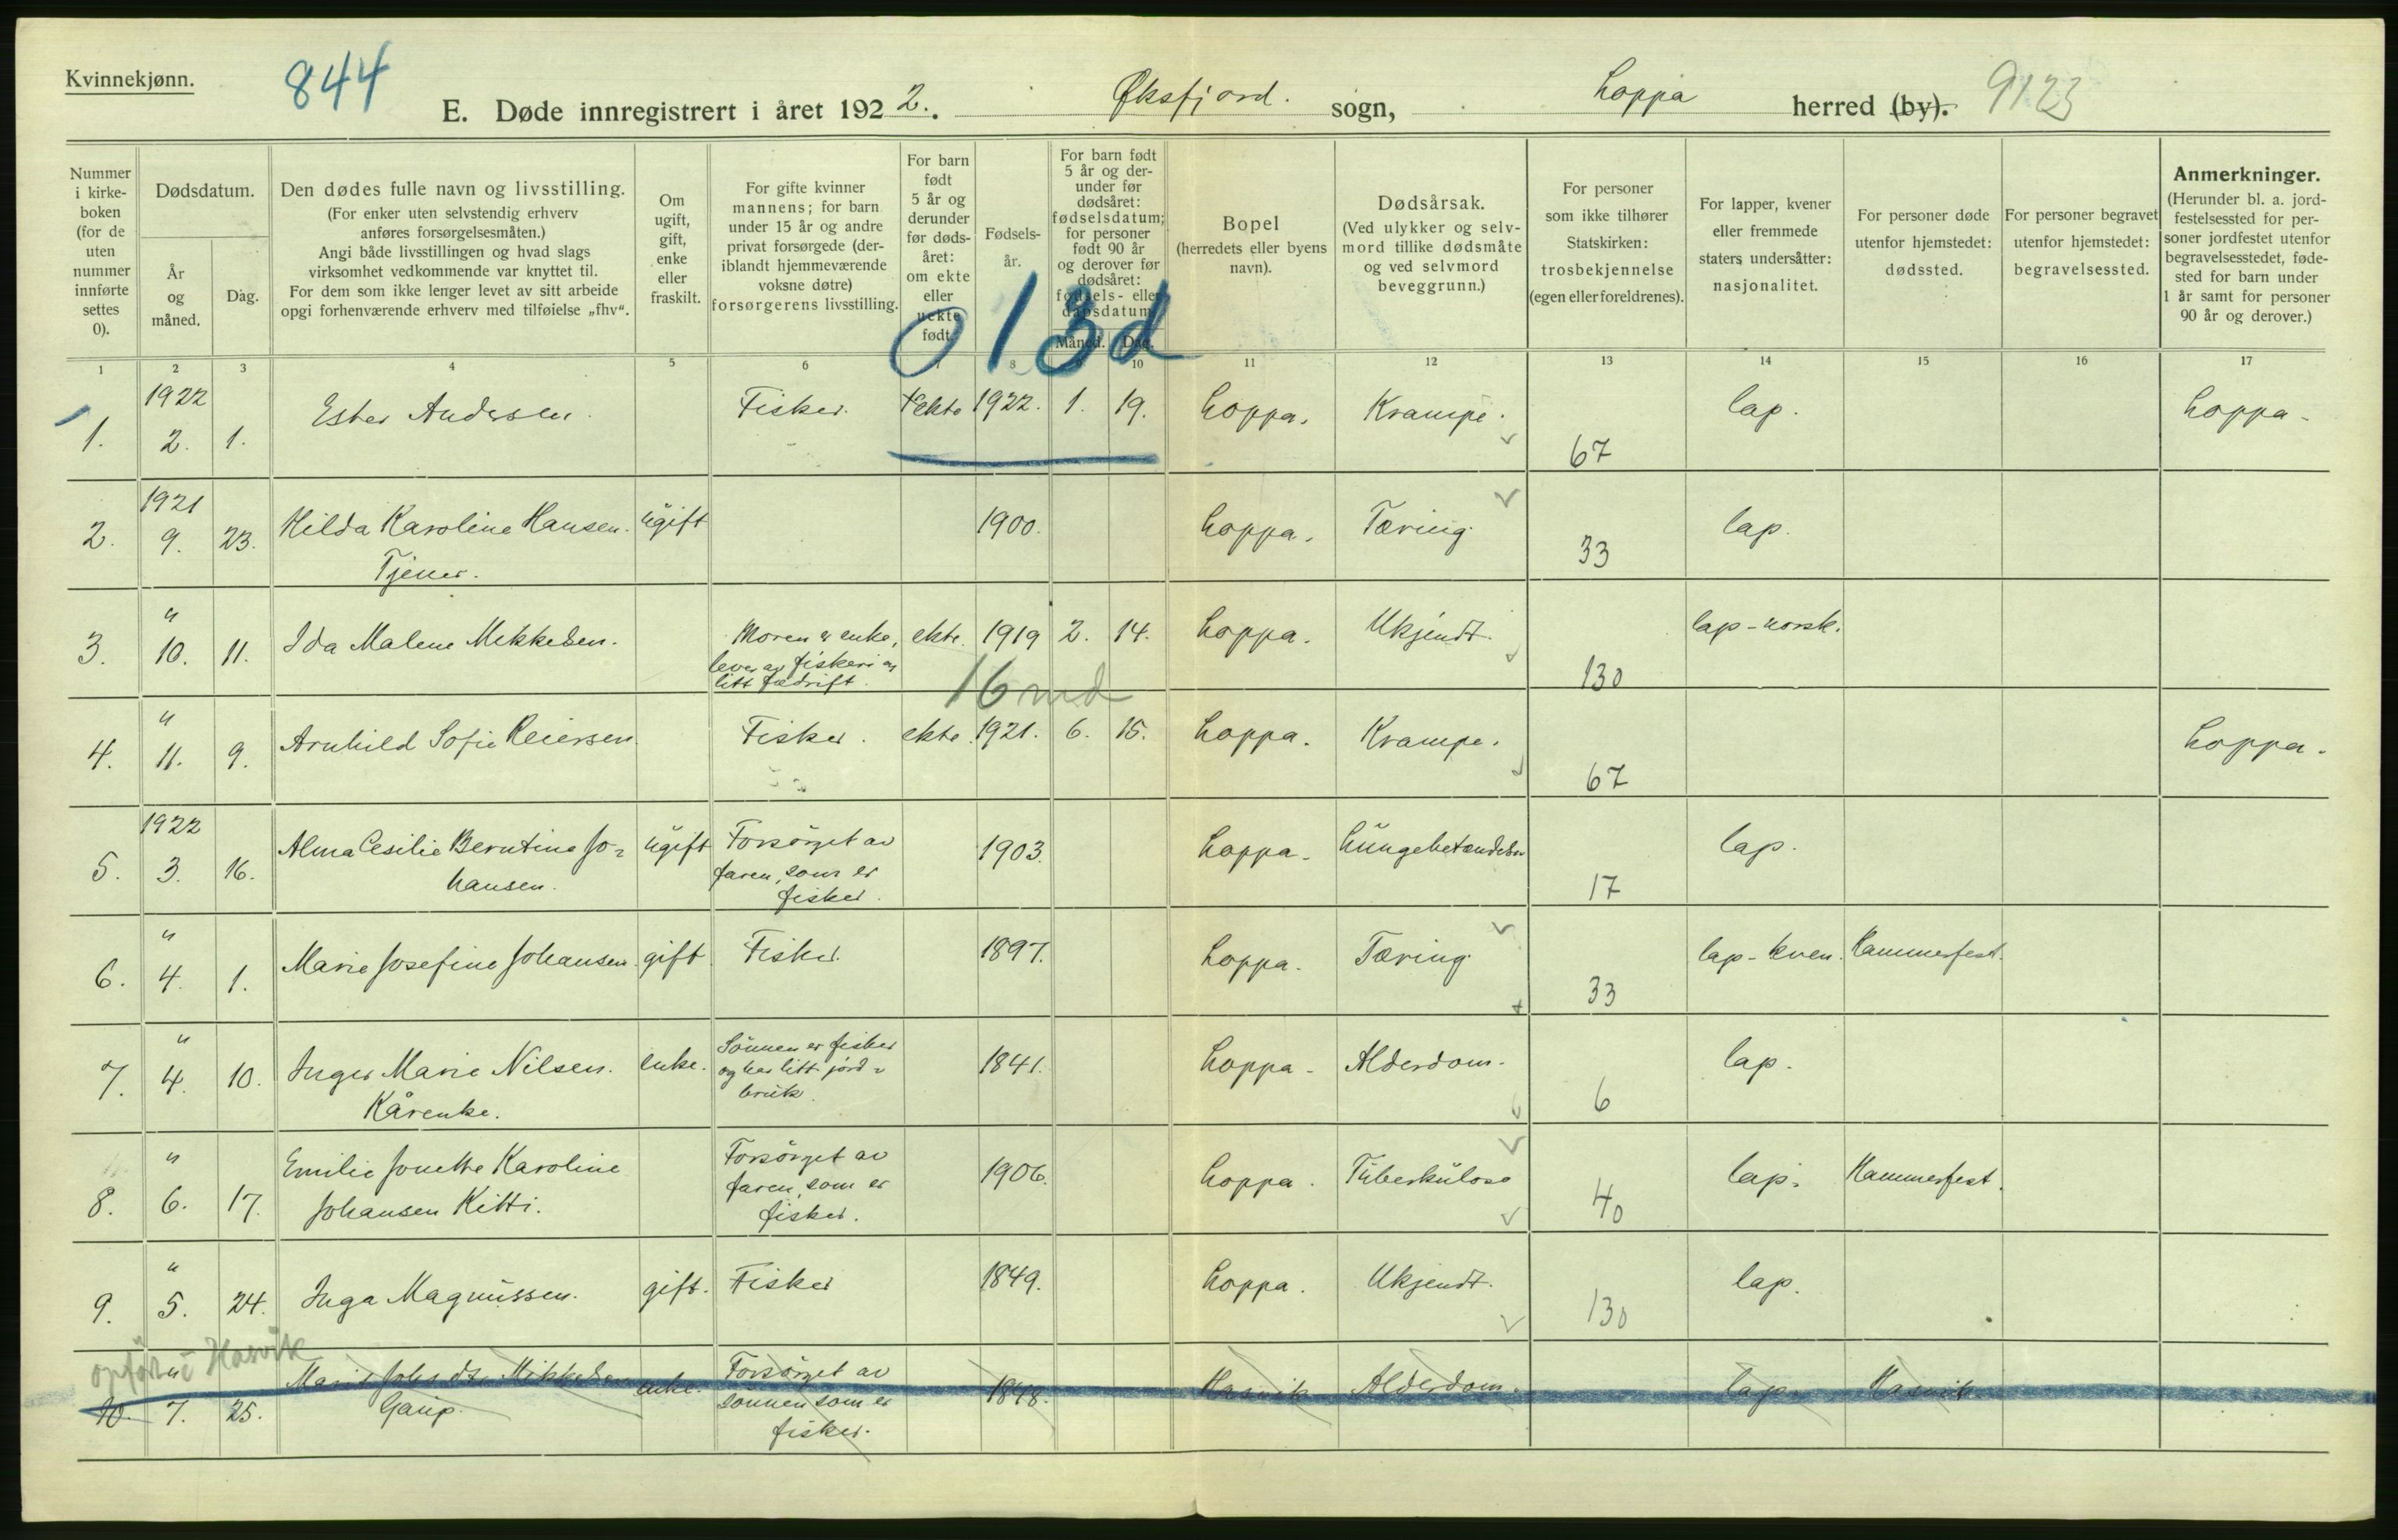 Kvinnekjønn.
844
E. Døde innregistrert i året 1922. Øksfjord. sogn, Loppa herred (by). 9123
Nummer i kirkeboken (for de uten nummer innførte settes 0).
Dødsdatum.
År og måned.
Dag.
Den dødes fulle navn og livsstilling.
(For enker uten selvstendig erhverv anføres forsørgelsesmåten.)
Angi både livsstillingen og hvad slags virksomhet vedkommende var knyttet til.
For dem som ikke lenger levet av sitt arbeide opgi forhenværende erhverv med tilføielse „fhv“.
Om ugift, gift, enke eller fraskilt.
For gifte kvinner mannens; for barn under 15 år og andre privat forsørgede (deriblandt hjemmeværende voksne døtre) forsørgerens livsstilling.
For barn født 5 år og derunder før dødsåret: om ekte eller uekte født.
Fødselsår.
For barn født 5 år og derunder før dødsåret: fødselsdatum; for personer født 90 år og derover før dødsåret: fødsels- eller dåpsdatum.
Måned. Dag.
Bopel
(herredets eller byens navn).
Dødsårsak.
(Ved ulykker og selvmord tillike dødsmåte og ved selvmord beveggrunn.)
For personer som ikke tilhører Statskirken: trosbekjennelse (egen eller foreldrenes).
For lapper, kvener eller fremmede staters undersåtter: nasjonalitet.
For personer døde utenfor hjemstedet: dødssted.
For personer begravet utenfor hjemstedet: begravelsessted.
Anmerkninger.
(Herunder bl. a. jordfestelsessted for personer jordfestet utenfor begravelsesstedet, fødested for barn under 1 år samt for personer 90 år og derover.)
013d
1 2 3 4 5 6 7 8 9 10 11 12 13 14 15 16 17
1. 1922 2. 1. Ester Andersen. Fisker. ekte 1922. 1. 19. Loppa. Krampe. 67 lap. Loppa.
2. 1921 9. 23. Hilda Karoline Hansen. Tjener. ugift 1900. Loppa. Tæring. 33 lap.
3. " 10. 11. Ida Malene Mikkelsen. Moren er enke, lever av fiskeri og litt fædrift. ekte. 1919 2. 14. Loppa. Ukjendt. 130 lap-norsk.
16 md
4. " 11. 9. Arnhild Sofie Reiersen. Fisker. ekte. 1921. 6. 15. Loppa. Krampe. 67 Loppa.
5. 1922 3. 16. Alma Cesilie Berntine Johansen. ugift Forsørget av faren, som er fisker. 1903. Loppa. Lungebetændelse 17 lap.
6. " 4. 1. Marie Josefine Johansen. gift Fisker. 1897. Loppa. Tæring. 33 lap-kven. Hammerfest.
7. " 4. 10. Inger Marie Nilsen. Kårenke. enke. Sønnen er fisker og har litt jordbruk. 1841. Loppa. Alderdom. 6 lap.
8. " 6. 17. Emilie Jonette Karoline Johansen Kitti. Forsørget av faren, som er fisker. 1906. Loppa. Tuberkulose 40 lap. Hammerfest.
9. " 5. 24. Inga Magnussen. gift. Fisker 1849. Loppa. Ukjendt. 130 lap.
opført i Hasvik
10. " 7. 25. Marit Mikkelsen Gaup. enke. Forsørget av sønnen som er fisker. 1848. Hasvik Alderdom. lap. Hasvik